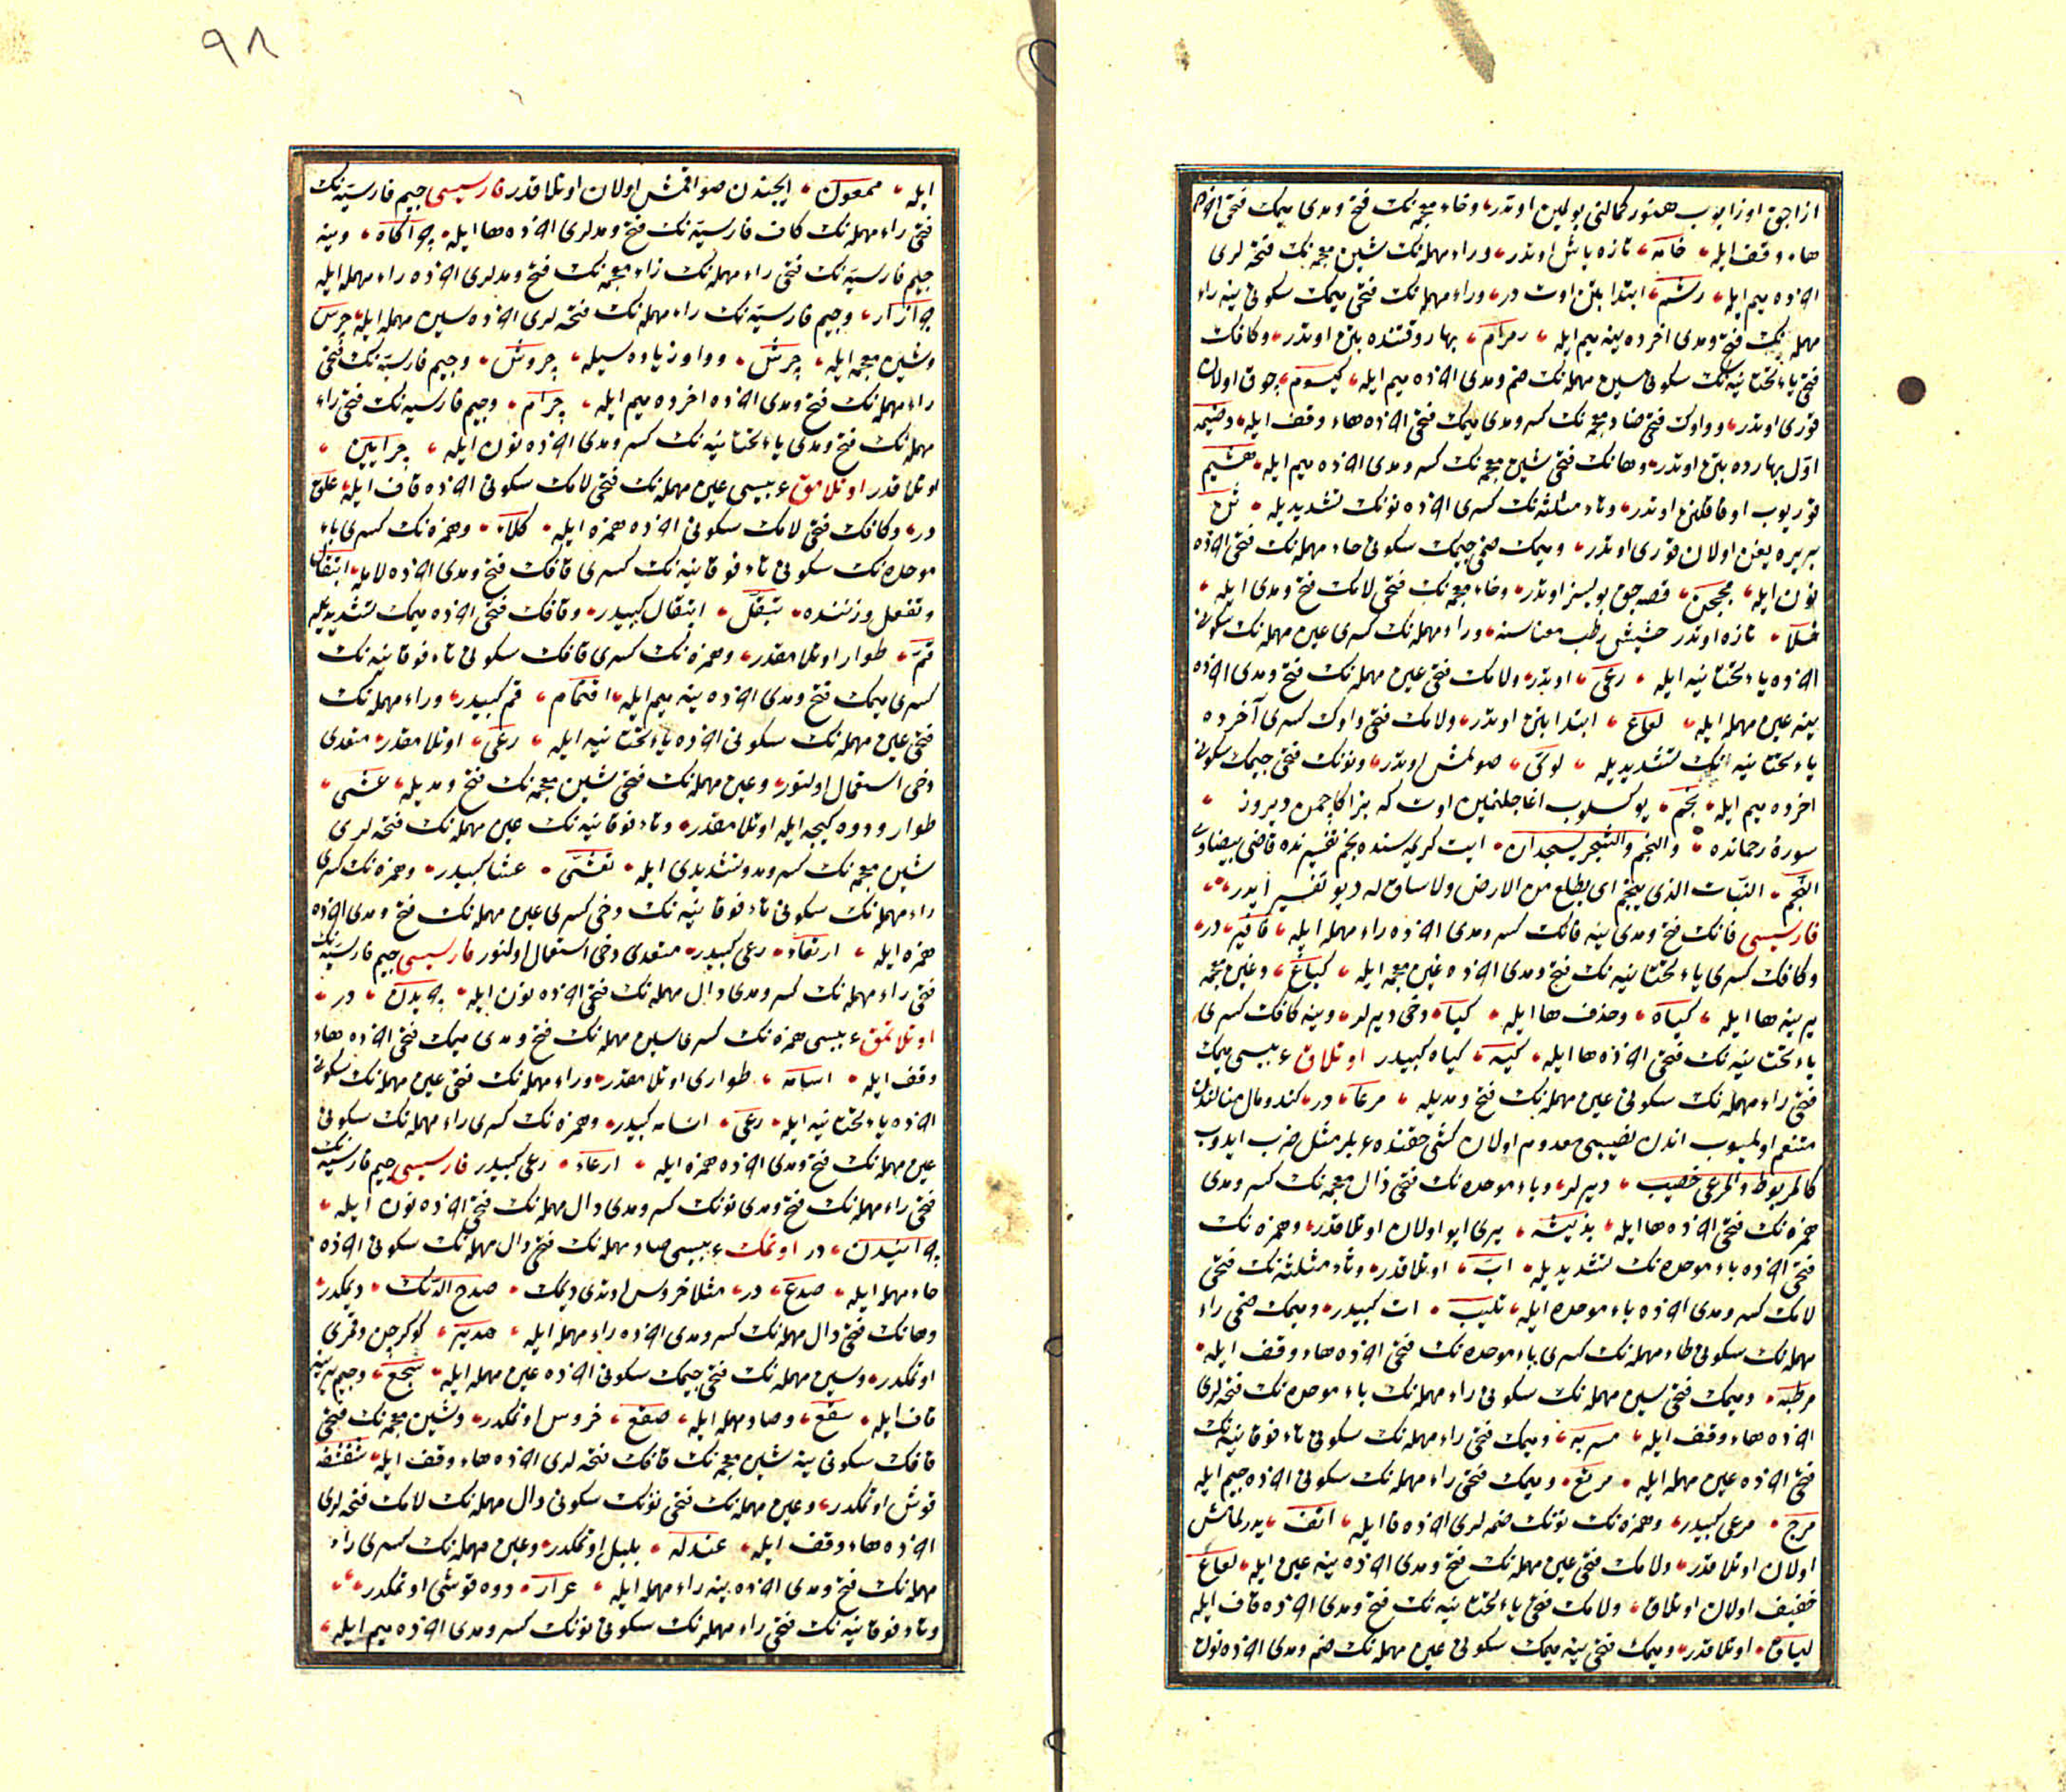 ازاجق اوزایوب هنوز کمالنی بولمین اوتدر وخاء معجمه‌نک فتح ومدی میمک فتحی اخرده
هاء وقف ایله خامه تازه یاش اوتدر وراء مهمله‌نک شین معجمه‌نک فتحه‌لری
اخرده میم ایله رشم ابتدا بتن اوت در وراء مهمله‌نک فتحی میمک سکونی ینه راء
مهمله‌نک فتح ومدی اخرده ینه میم ایله رمرام بهار وقتنده بتن اوتدر وکافک
فتحی یاء تحتانیه‌نک سکونی سین مهمله‌نک ضم ومدی اخرده میم ایله کیسوم چوق اولان
قوری اوتدر وواوک فتحی ضاد معجمه‌نک کسر ومدی میمک فتحی اخرده هاء وقف ایله وضیمه
اول بهارده بتن اوتدر وهانک فتحی شین معجمه‌نک کسر ومدی اخرده میم ایله هشیم
قوریوب اوفاقلنن اوتدر وثاء مثلثه‌نک کسری اخرده نونک تشدیدیله ثن
بربره یغن اولان قوری اوتدر ومیمک ضمی جیمک سکونی حاء مهمله‌نک فتحی اخرده
نون ایله مجحن قصه جق بویسز اوتدر وخاء معجمه‌نک فتحی لامک فتح ومدی ایله
خلا تازه اوتدر حشیش رطب معناسنه وراء مهمله‌نک کسری عین مهمله‌نک سکونی
اخرده یاء تحتانیه ایله رعی اوتدر ولامک فتحی عین مهمله‌نک فتح ومدی اخرده
ینه عین مهمله ایله لعاع ابتدا بتن اوتدر ولامک فتحی واوک کسری آخرده
یاء تحتانیه‌نک تشدیدیله لوی صولمش اوتدر ونونک فتحی جیمک سکونی
اخرده میم ایله نجم یوکسلوب اغاجلنمین اوت که بزاکا چمن دیروز
سورۀ رحمانده والنجم والشجر یسجدان ایت کریمه‌سنده نجم تفسیرنده قاضی بیضاوی
النجم النبات الذی ینجم ای یطلع من الارض ولا ساق له دیو تفسیر ایدر
فارسیسی فانک فتح ومدی ینه فانک کسر ومدی اخرده راء مهمله ایله فافیر در
وکافک کسری یاء تحتانیه‌نک فتح ومدی اخرده غین معجمه ایله کیاغ وغین معجمه
یرینه ها ایله کیاه وحذف ها ایله کیا دخی دیرلر وینه کافک کسری
یاء تحتانیه‌نک فتحی اخرده ها ایله کیه کیاه کبیدر اوتلاق عربیسی میمک
فتحی راء مهمله‌نک سکونی عین مهمله‌نک فتح ومدیله مرعا در کندو مال
متنعم اولمیوب اندن نصیبی معدوم اولان کشی حقنده عربلر مثل ضرب ایدوب
کالمربوط والمرعی خصیب دیرلر وباء موحده‌نک فتحی ذال معجمه‌نک کسر ومدی
همزه‌نک فتحی اخرده ها ایله بذیئه یری ایو اولان اوتلاقدر وهمزه‌نک
فتحی اخرده باء موحده‌نک تشدیدیله اب اوتلاقدر وثاء مثلثه‌نک فتحی
لامک کسر ومدی اخرده باء موحده ایله ثلیب اب کبیدر ومیمک ضمی راء
مهمله‌نک سکونی طاء مهمله‌نک کسری باء موحده‌نک فتحی اخرده هاء وقف ایله
مرطبه ومیمک فتحی سین مهمله‌نک سکونی راء مهمله‌نک باء موحده‌نک فتحه‌لری
اخرده هاء وقف ایله مسربه ومیمک فتحی راء مهمله‌نک سکونی تاء فوقانیه‌نک
فتحی اخرده عین مهمله ایله مرتع ومیمک فتحی راء مهمله‌نک سکونی اخرده جیم ایله
مرج مرعی کبیدر وهمزه‌نک نونک ضمه‌لری اخرده فا ایله انف یدرلمامش
اولان اوتلاقدر ولامک فتحی عین مهمله‌نک فتح ومدی اخرده ینه عین ایله لعاع
خفیف اولان اوتلاق ولامک فتحی یاء تحتانیه‌نک فتح ومدی اخرده قاف ایله
لیاق اوتلاقدر ومیمک فتحی ینه میمک سکونی عین مهمله‌نک ضم ومدی اخرده نون
۹۸
ایله ممعون ایچندن صو اقمش اولان اوتلاقدر فارسیسی جیم فارسیه‌نک
فتحی راء مهمله‌نک کاف فارسیه‌نک فتح ومدلری اخرده ها ایله چراگاه وینه
جیم فارسیه‌نک فتحی راء مهمله‌نک زاء معجمه‌نک فتح ومدلری اخرده راء مهمله ایله
چرازار وجیم فارسیه‌نک راء مهمله‌نک فتحه‌لری اخرده سین مهمله ایله چرس
وشین معجمه ایله چرش وواو زیاده‌سیله چروش وجیم فارسیه‌نک فتحی
راء مهمله‌نک فتح ومدی اخرده اخرده میم ایله چرام وجیم فارسیه‌نک فتحی راء
مهمله‌نک فتح ومدی یاء تحتانیه‌نک کسر ومدی اخرده نون ایله چرایین
اوتلاقدر اوتلامق عربیسی عین مهمله‌نک فتحی لامک سکونی اخرده قاف ایله علق
در وکافک فتحی لامک سکونی اخرده همزه ایله کلاء وهمزه‌نک کسری باء
موحده‌نک سکونی تاء فوقانیه‌نک کسری قافک فتح ومدی اخرده لام ایله ابتقال
وتفعل وزننده تبقل ابتقال کبیدر وقافک فتحی اخرده میمک تشدیدیله
قم طوار اوتلامقدر وهمزه‌نک کسری قافک سکونی تاء فوقانیه‌نک
کسری میمک فتح ومدی اخرده ینه میم ایله اقتمام قم کبیدر وراء مهمله‌نک
فتحی عین مهمله‌نک سکونی اخرده یاء تحتانیه ایله رعی اوتلامقدر متعدی
دخی استعمال اولنور وعین مهمله‌نک فتحی شین معجمه‌نک فتح ومدیله عشی
طوار ودوه کیجه ایله اوتلامقدر وتاء فوقانیه‌نک عین مهمله‌نک فتحه‌لری
شین معجمه‌نک کسر ومد وتشدیدی ایله تعشی عشا کبیدر وهمزه‌نک کسری
راء مهمله‌نک سکونی تاء فوقانیه‌نک دخی کسری عین مهمله‌نک فتح ومدی اخرده
همزه ایله ارتعاء رعی کبیدر متعدی دخی استعمال اولنور فارسیسی جیم فارسیه‌نک
فتحی راء مهمله‌نک کسر ومدی دال مهمله‌نک فتحی اخرده نون ایله چریدن در
اوتلاتمق عربیسی همزه‌نک کسری سین مهمله‌نک فتح ومدی میمک فتحی اخرده هاء
وقف ایله اسامه طواری اوتلامقدر وراء مهمله‌نک فتحی عین مهمله‌نک سکونی
اخرده یاء تحتانیه ایله رعی اسامه کبیدر وهمزه‌نک کسری راء مهمله‌نک سکونی
عین مهمله‌نک فتح ومدی اخرده همزه ایله ارعاء رعی کبیدر فارسیسی جیم فارسیه‌نک
فتحی راء مهمله‌نک فتح ومدی نونک کسر ومدی دال مهمله‌نک فتحی اخرده نون ایله
چرانیدن در اوتمک عربیسی صاد مهمله‌نک فتحی دال مهمله‌نک سکونی اخرده
حاء مهمله ایله صدح در مثلا خروس اوتدی دیمک صدح الدیک دیمکدر
وهانک فتحی دال مهمله‌نک کسر ومدی اخرده راء مهمله ایله هدیر کوکرجن وقمری
اوتمکدر وسین مهمله‌نک فتحی جیمک سکونی اخرده عین مهمله ایله سجع وجیم یرینه
قاف ایله سقع وصاد مهمله ایله صقع خروس اوتمکدر وشین معجمه‌نک فتحی
قافک سکونی ینه شین معجمه‌نک قافک فتحه‌لری اخرده هاء وقف ایله شقشقه
قوش اوتمکدر وعین مهمله‌نک فتحی نونک سکونی دال مهمله‌نک لامک فتحه‌لری
اخرده هاء وقف ایله عندله بلبل اوتمکدر وعین مهمله‌نک کسری راء
مهمله‌نک فتح ومدی اخرده ینه راء مهمله ایله عرار دوه قوشی اوتمکدر
وتاء فوقانیه‌نک فتحی راء مهمله‌نک سکونی نونک کسر ومدی اخرده میم ایله